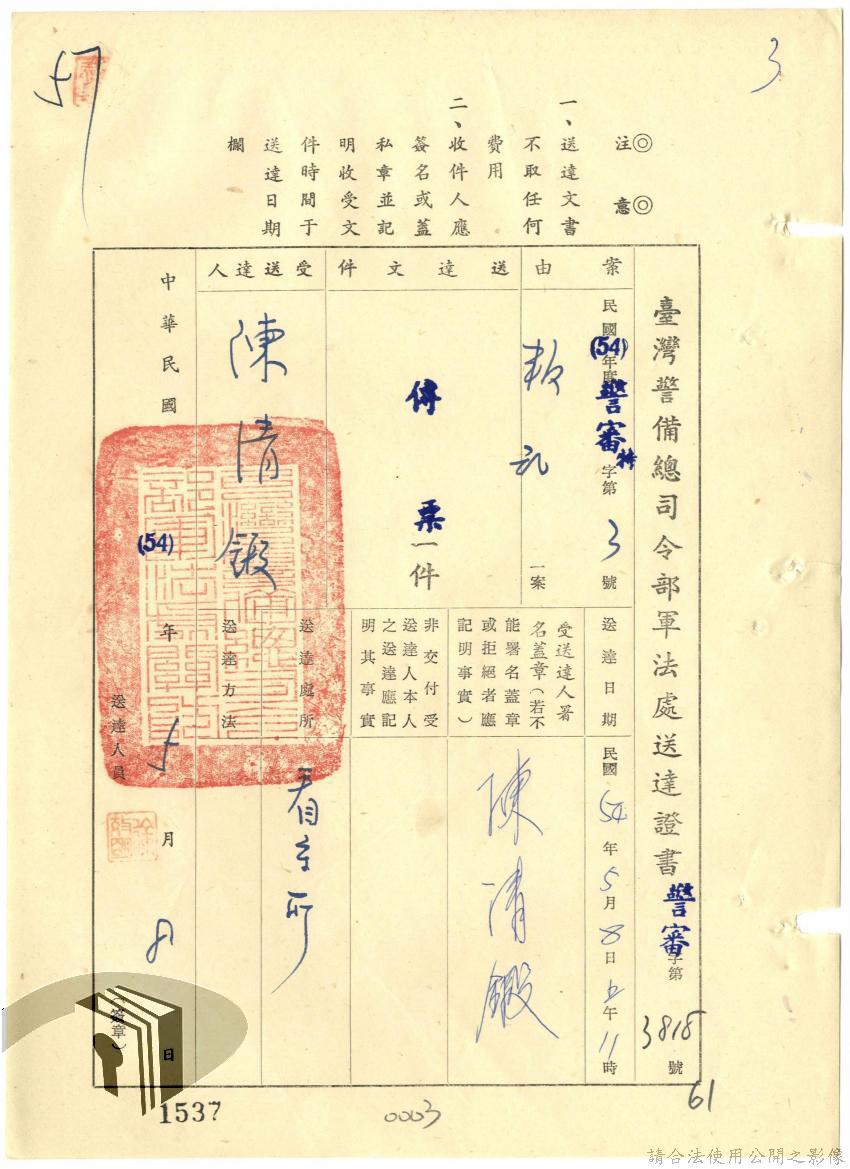 3
57
注意
一、送達文書
不取任何
費用
二、收件人應
簽名或蓋
私章並記
明收受文
件時間于
送達日期
欄
臺灣警備總司令部軍法處送達證書 警審字第3818號
案由
民國(54)年度警審特字第3號
叛乱一案
送達文件
傳票一件
受送達人
陳清鍛
送達日期
民國54年5月8日上午11時
受送達人署
名蓋章(若不
能署名蓋章
或拒絕者應
記明事實)
陳清鍛
非交付受
送達人本人
之送達應記
明其事實
送達處所
看守所
送達方法
中華民國(54)年5月8日
送達人員
(簽章)
1537
0003
61
請合法使用公開之影像